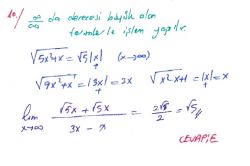 10/ ∞/∞ da derecesi büyük olan
terimlerle işlem yapılır.
√5x²4x = √5|x| (x→∞)
√9x²+x = |3x| = 3x √x²x+1 = |x| = x
lim x→∞ (√5x + √5x)/(3x - x) = 2√5/2 = √5//
CEVAP: E